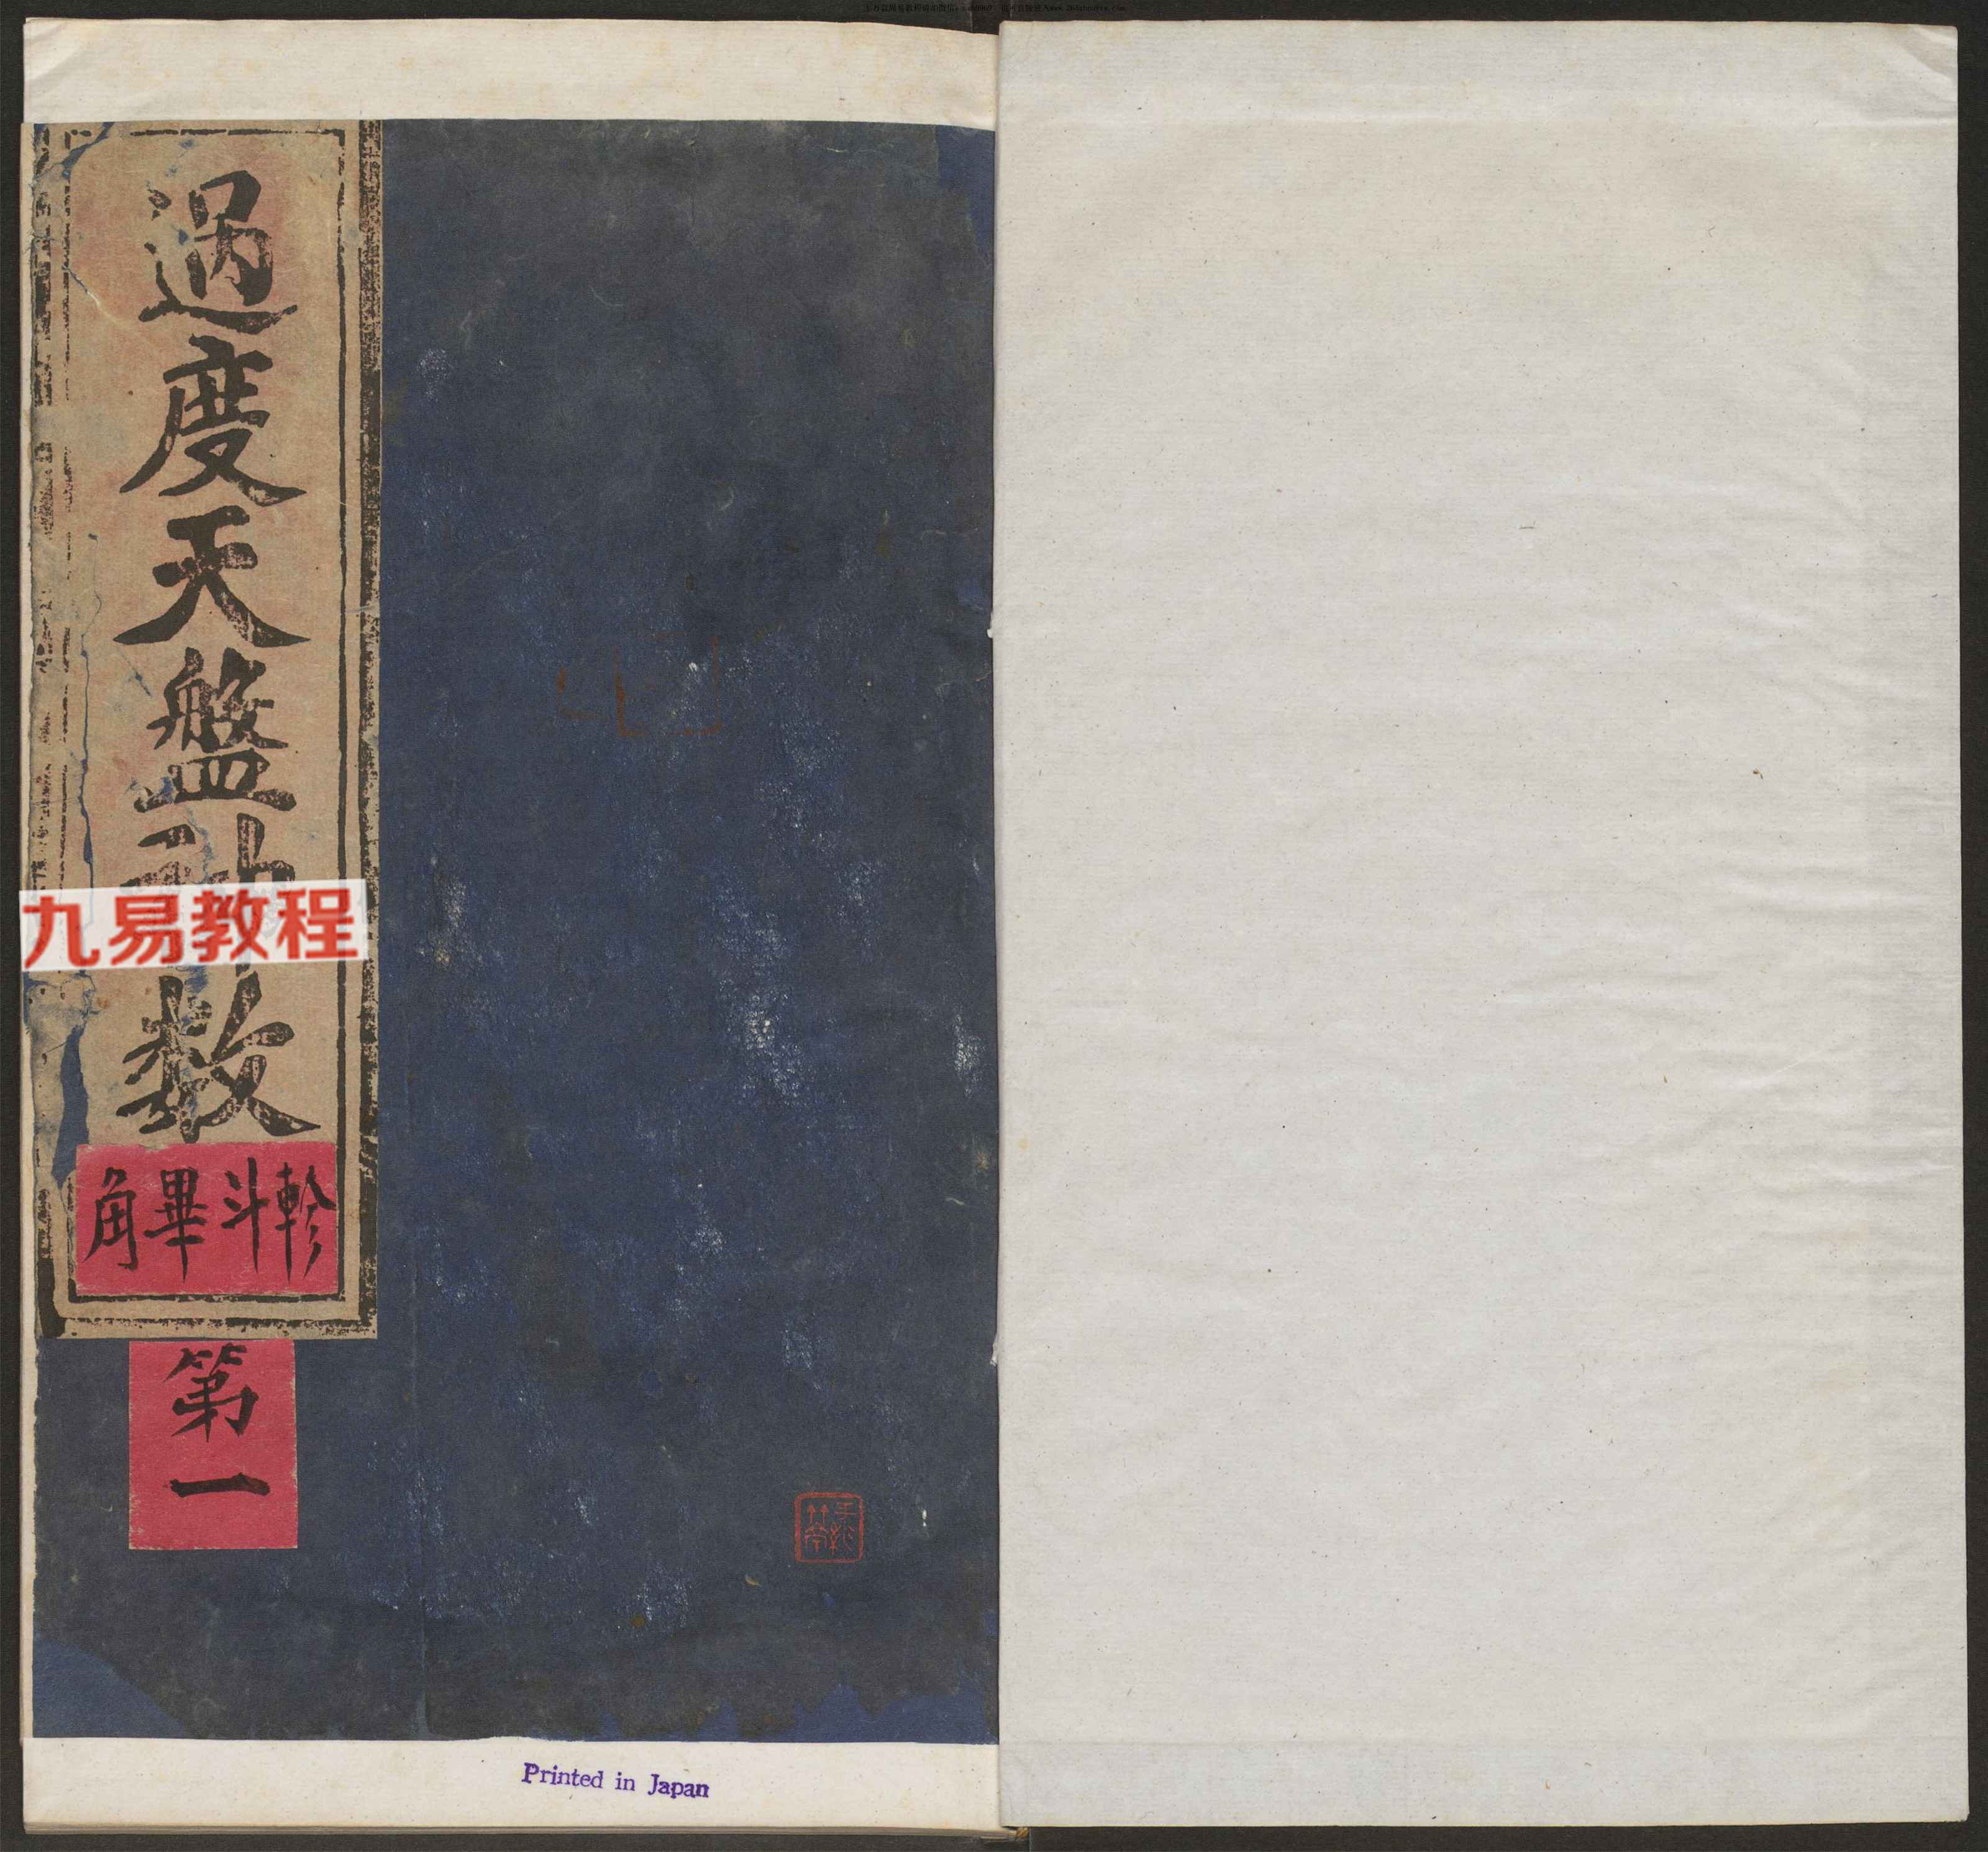 過度天盤神数
軫斗畢角
第一
九易教程
Printed in Japan